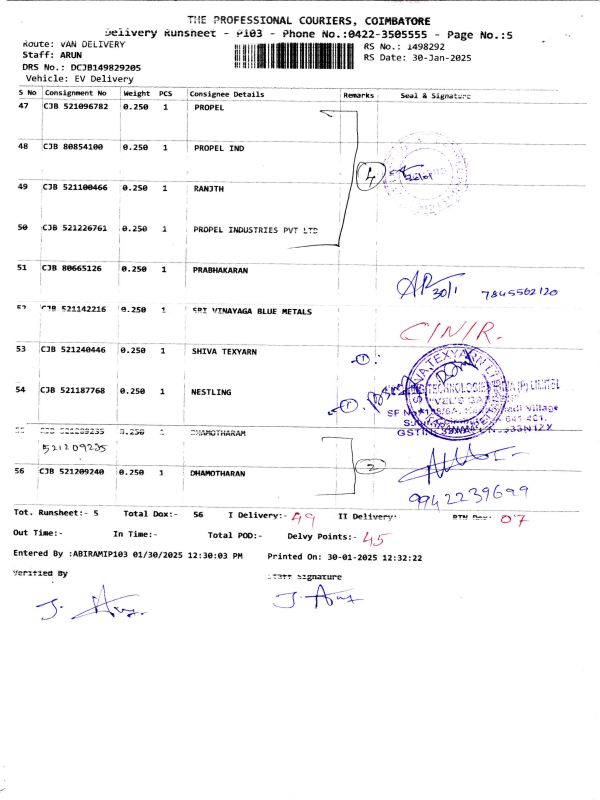 THE PROFESSIONAL COURIERS, COIMBATORE
Delivery Runsheet - P103 - Phone No.:0422-3505555 - Page No.:5
Route: VAN DELIVERY
RS No.: 1498292
Staff: ARUN
RS Date: 30-Jan-2025
DRS No.: DCJB149829205
Vehicle: EV Delivery
S No Consignment No Weight PCS Consignee Details Remarks Seal & Signature
47 CJB 521096782 0.250 1 PROPEL
48 CJB 80854100 0.250 1 PROPEL IND
4
49 CJB 521100466 0.250 1 RANJTH
50 CJB 521226761 0.250 1 PROPEL INDUSTRIES PVT LTD
51 CJB 80665126 0.250 1 PRABHAKARAN
30/1 7845562120
52 CJB 521142216 0.250 1 SRI VINAYAGA BLUE METALS
C/N/R.
53 CJB 521240446 0.250 1 SHIVA TEXYARN
1
54 CJB 521187768 0.250 1 NESTLING
1
55 CJB 521209235 0.250 1 DHAMOTHARAM
521209235
2
56 CJB 521209240 0.250 1 DHAMOTHARAN
9942239699
Tot. Runsheet:- 5 Total Dox:- 56 I Delivery:- 49 II Delivery: RTN Dox: 07
Out Time:- In Time:- Total POD:- Delvy Points:- 45
Entered By :ABIRAMIP103 01/30/2025 12:30:03 PM Printed On: 30-01-2025 12:32:22
Verified By Staff Signature
J. Arun J. Arun